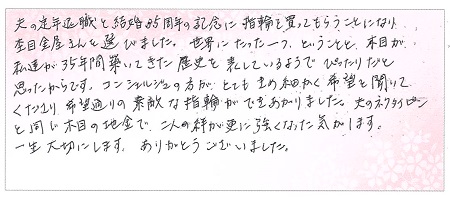 夫の定年退職と結婚35周年の記念に指輪を買ってもらうことになり、
杢目金屋さんを選びました。世界にたった一つ、ということと、木目が
私達が35年間築いてきた歴史を表しているようでぴったりだと
思ったからです。コンシェルジュの方が、とてもきめ細かく希望を聞いて
くださり希望通りの素敵な指輪ができあがりました。夫のネクタイピン
と同じ木目の地金で、二人の絆が更に強くなった気がします。
一生大切にします。ありがとうございました。